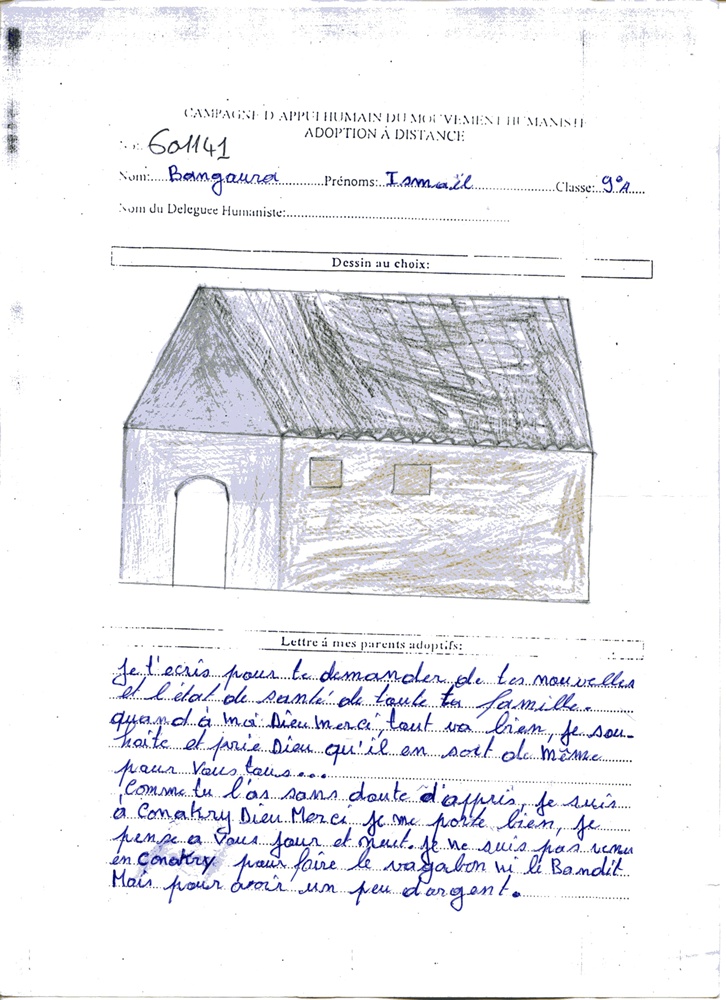 CAMPAGNE D'APPUI HUMAIN DU MOUVEMENT HUMANISTE
ADOPTION À DISTANCE
601141
Nom:.....Bangoura..........Prénoms: Ismaël..................Classe: 9°A....
Nom du Deleguee Humaniste:..........................................
Dessin au choix:
Lettre á mes parents adoptifs:
Je t'ecris pour te demander de tes nouvelles
et l'état de santé de toute ta famille.
quand à moi Dieu merci, tout va bien, je sou-
haite et prie Dieu qu'il en soit de même
pour Vous tous...
Comme tu l'as sans doute d'appris, je suis
à Conakry Dieu Merci je me porte bien, je
pense a Vous jour et nuit. je ne suis pas venu
en Conakry pour faire le vagabon ni le Bandit
Mais pour avoir un peu d'argent.